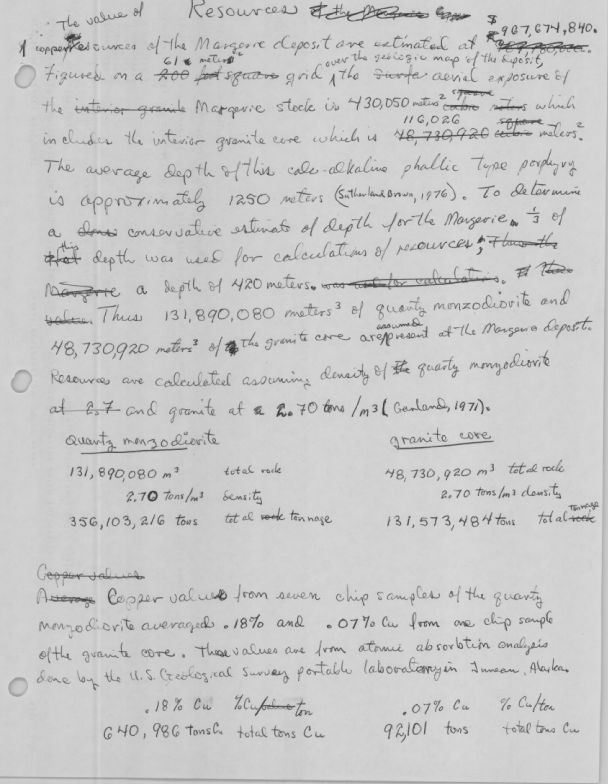 Resources
The value of $967,674,840.
copper resources of the Margerie deposit are estimated at
61 meters² over the geologic map of the deposit,
Figured on a 200 square grid, the Surfa aerial exposure of
the interior granite Margerie stock is 430,050 meters² which
116,026 square
includes the interior granite core which is 48,730,920 cubic meters².
The average depth of this calc-alkaline phallic type porphyry
is approximately 1250 meters (Sutherland Brown, 1976). To determine
a conservative estimate of depth for the Margerie, 1/3 of
this depth was used for calculations of resources; Thus the
Margerie a depth of 420 meters. was used for calculations.
Thus 131,890,080 meters³ of quartz monzodiorite and
assumed
48,730,920 meters³ of the granite core are present at the Margerie deposit.
Resources are calculated assuming density of the quartz monzodiorite
at 2.7 and granite at 2.70 tons/m3 (Garland, 1971).
Quartz monzodiorite granite core
131,890,080 m³ total rock 48,730,920 m³ total rock
2.70 tons/m³ density 2.70 tons/m³ density
356,103,216 tons total rock tonnage 131,573,484 tons total rock tonnage
Copper values
Average Copper values from seven chip samples of the quartz
monzodiorite averaged .18% and .07% Cu from one chip sample
of the granite core. These values are from atomic absorbtion analysis
done by the U.S. Geological Survey portable laboratory in Juneau, Alaska.
.18% Cu %Cu/ton .07% Cu % Cu/ton
640,986 tons Cu total tons Cu 92,101 tons total tons Cu